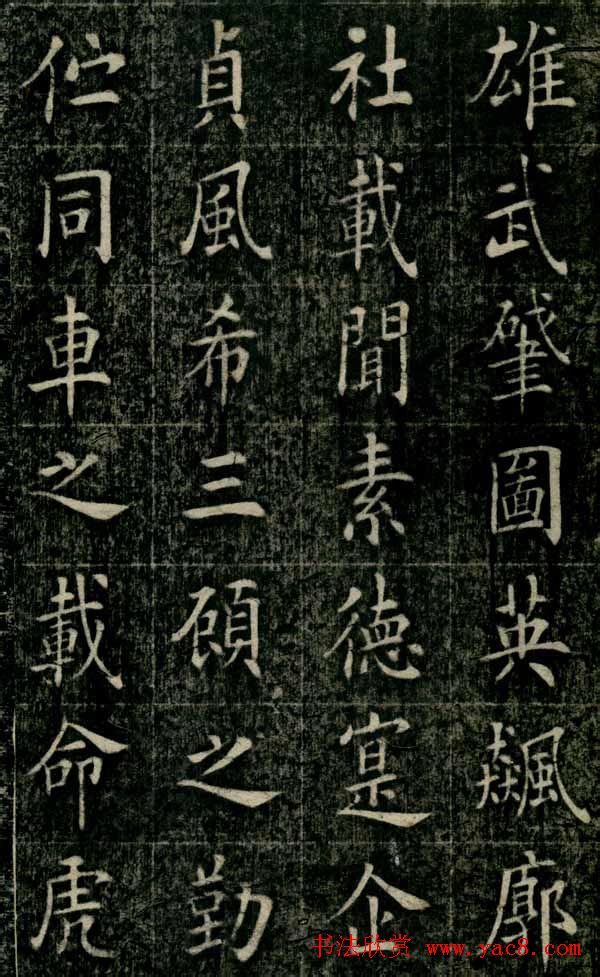 雄武肇圖英飆廓
社載聞素德寔企
貞風希三顧之勤
佇同車之載命虎
书法欣赏 www.yac8.com